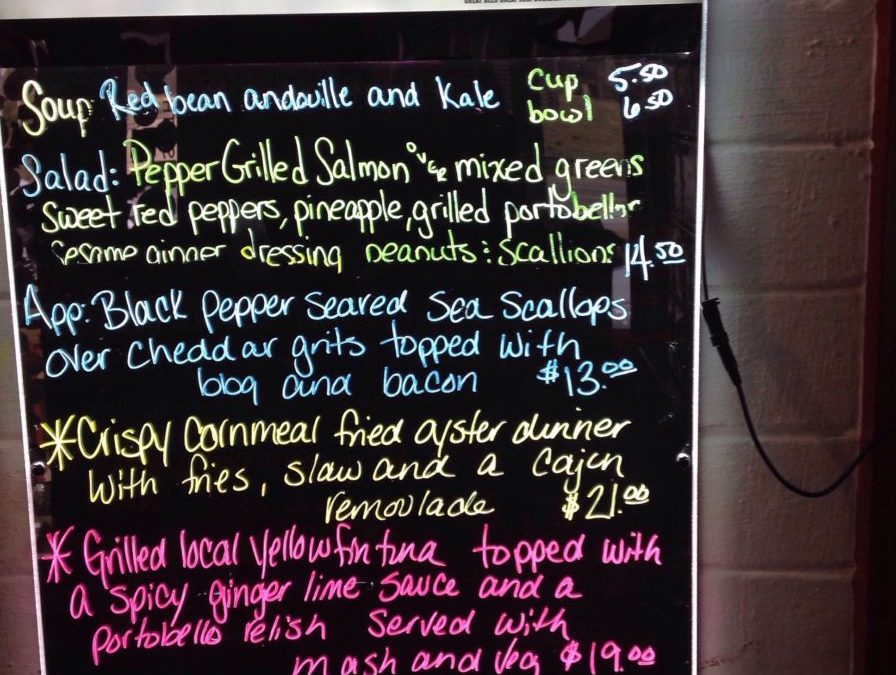 Soup: Red bean andouille and Kale cup 5.50
bowl 6.50
Salad: Pepper Grilled Salmon over mixed greens
Sweet red peppers, pineapple, grilled portobellos
sesame ginner dressing peanuts : scallions 14.50
App: Black pepper seared Sea Scallops
over cheddar grits topped with
bbq and bacon $13.00
*Crispy Cornmeal fried oyster dinner
with fries, slaw and a cajun
remoulade $21.00
*Grilled local yellowfin tuna topped with
a spicy ginger lime sauce and a
portobello relish served with
mash and veg $19.00